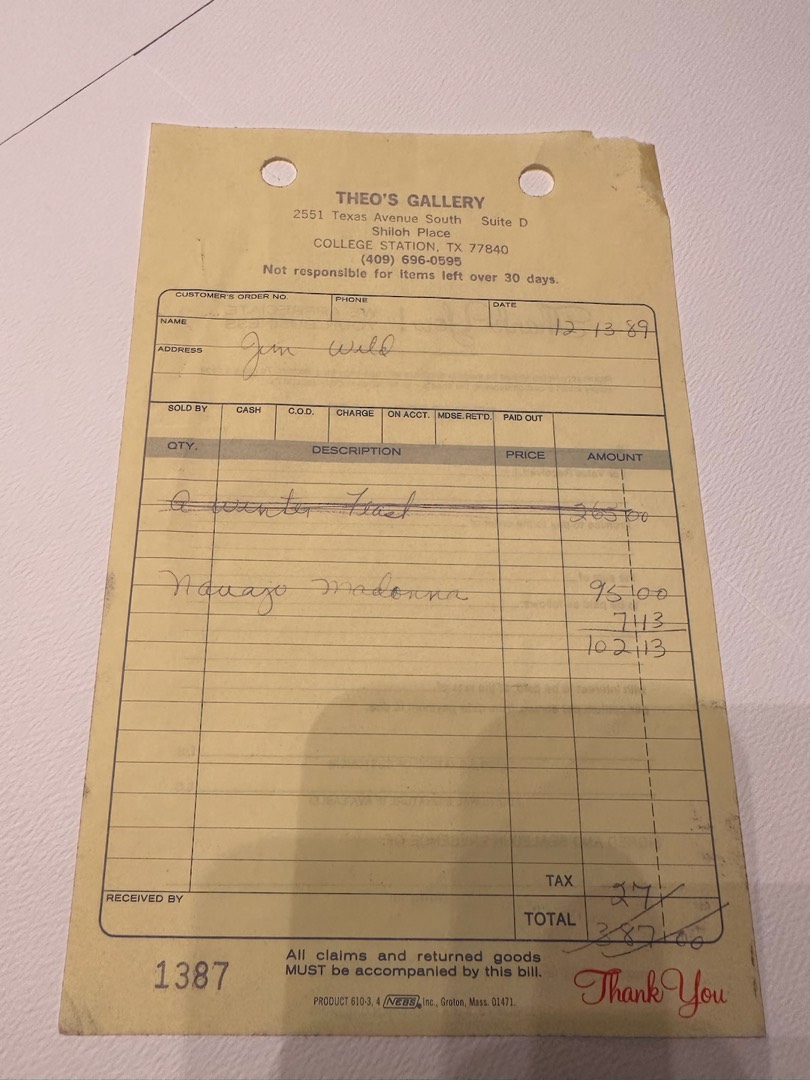 THEO'S GALLERY
2551 Texas Avenue South Suite D
Shiloh Place
COLLEGE STATION, TX 77840
(409) 696-0595
Not responsible for items left over 30 days.
CUSTOMER'S ORDER NO. PHONE DATE
12-13-89
NAME
Jim Wild
ADDRESS
SOLD BY CASH C.O.D. CHARGE ON ACCT. MDSE. RET'D. PAID OUT
QTY. DESCRIPTION PRICE AMOUNT
A Winter Feast 265 00
Navajo Madonna 95 00
7 13
102 13
TAX 27
RECEIVED BY
TOTAL 387 00
1387
All claims and returned goods
MUST be accompanied by this bill.
Thank You
PRODUCT 610-3, 4 NEBS, Inc., Groton, Mass. 01471.